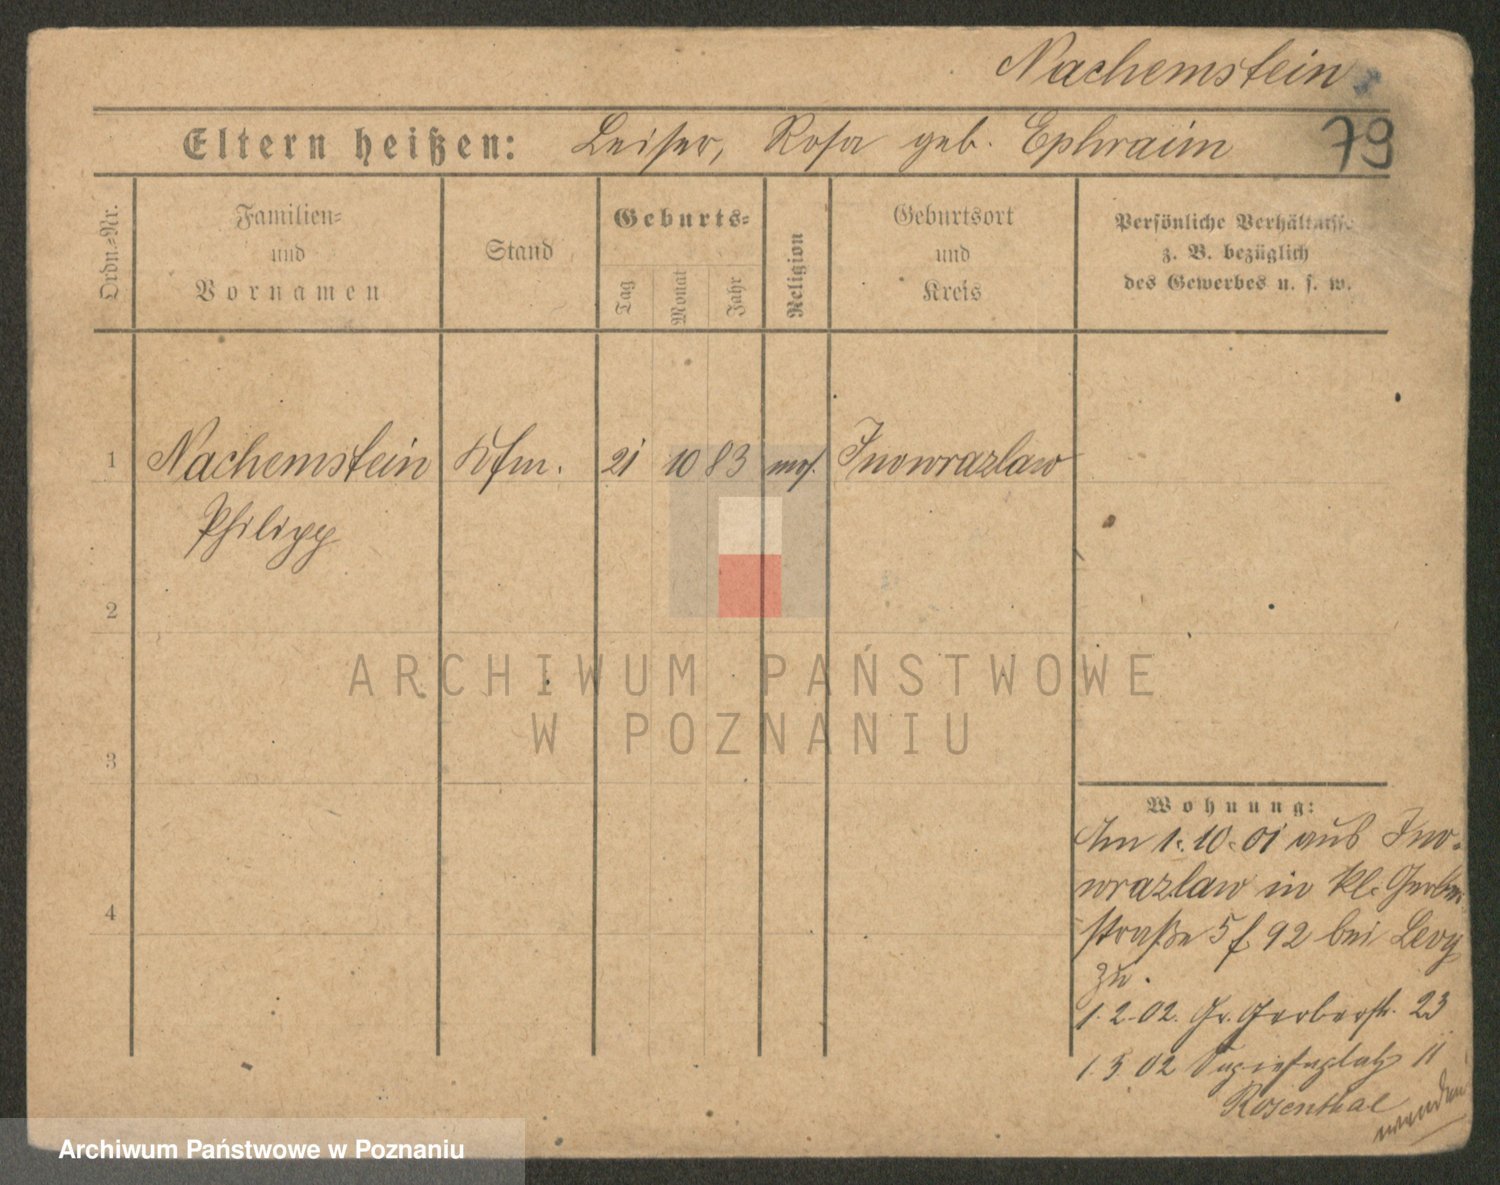 Nachemstein
Eltern heißen: Leiser, Rosa geb. Ephraim
79
Ordn.-Nr.
Familien-
und
Vornamen
Stand
Geburts-
Tag
Monat
Jahr
Religion
Geburtsort
und
Kreis
Persönliche Verhältnisse
z. B. bezüglich
des Gewerbes u. s. w.
1 Nachemstein Kfm. 21 10 83 mos. Inowrazlaw
Philipp
2
3
4
ARCHIWUM PAŃSTWOWE
W POZNANIU
Wohnung:
Am 1.10.01 aus Ino-
wrazlaw in kl. Gerber
straße 5 f 92 bei Levy
zu.
1.2.02. Gr. Gerberstr. 23
1 5 02 Sapiehaplatz 11
Rosenthal
wenden
Archiwum Państwowe w Poznaniu